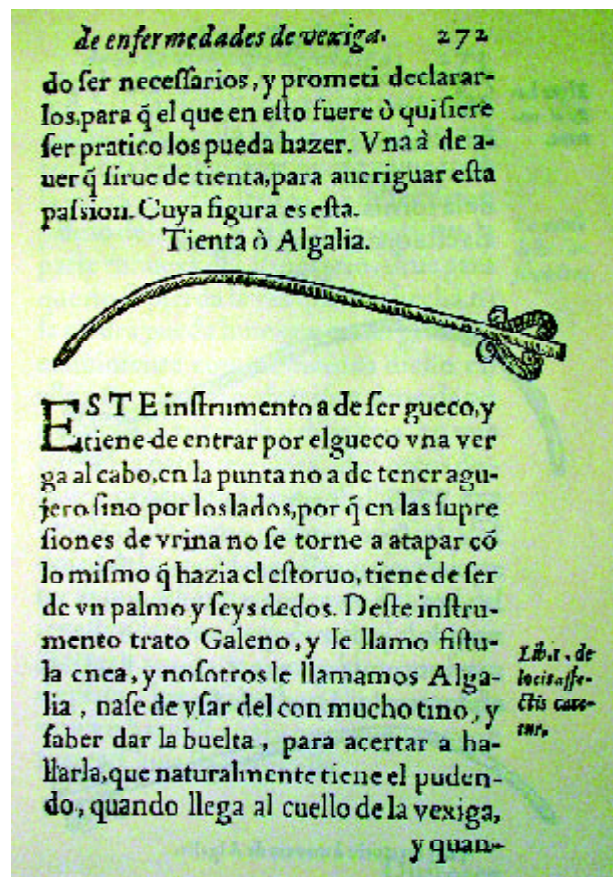 de enfermedades de vexiga. 272
do ſer neceſſarios, y prometi declarar-
los, para q̃ el que en eſto fuere ò quiſiere
ſer pratico los pueda hazer. Vna à de a-
uer q̃ ſirue de tienta, para aueriguar eſta
paſsion. Cuya figura es eſta.
Tienta ò Algalia.
ESTE inſtrumento a de ſer gueco, y
tiene de entrar por el gueco vna ver
ga al cabo, en la punta no a de tener agu-
jero ſino por los lados, por q̃ en las ſupre
ſiones de vrina no ſe torne a atapar cõ
lo miſmo q̃ hazia el eſtoruo, tiene de ſer
de vn palmo y ſeys dedos. Deſte inſtru-
mento trato Galeno, y le llamo fiſtu-
la enea, y noſotros le llamamos Alga-
lia, naſe de vſar del con mucho tino, y
ſaber dar la buelta, para acertar a ha-
llarla, que naturalmente tiene el puden-
do, quando llega al cuello de la vexiga,
y quan-
Lib. 1. de
locis affe-
ctis